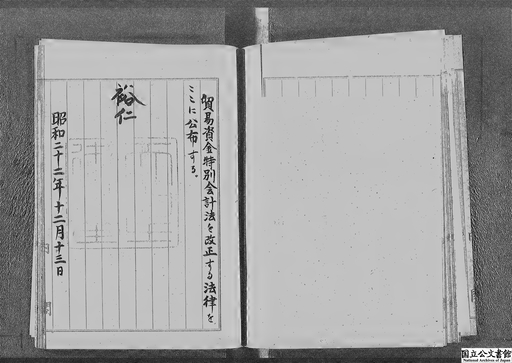 貿易資金特別会計法を改正する法律を
ここに公布する。
裕仁
昭和二十二年十二月十三日
内閣
国立公文書館
National Archives of Japan